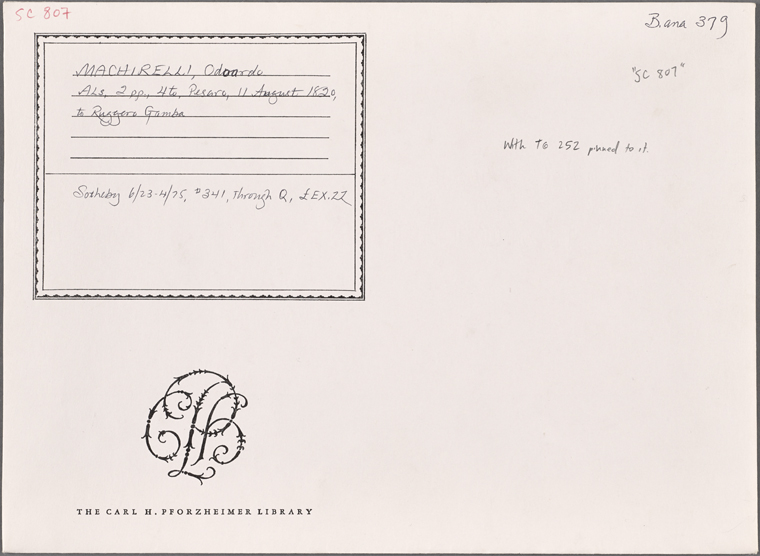 SC 807
B.ana 379
"SC 807"
MACHIRELLI, Odoardo
ALs, 2 pp., 4to, Pesaro, 11 August 1820,
to Ruggero Gamba
With TG 252 pinned to it.
Sotheby 6/23-4/75, #341, through Q, £EX.ZZ
THE CARL H. PFORZHEIMER LIBRARY